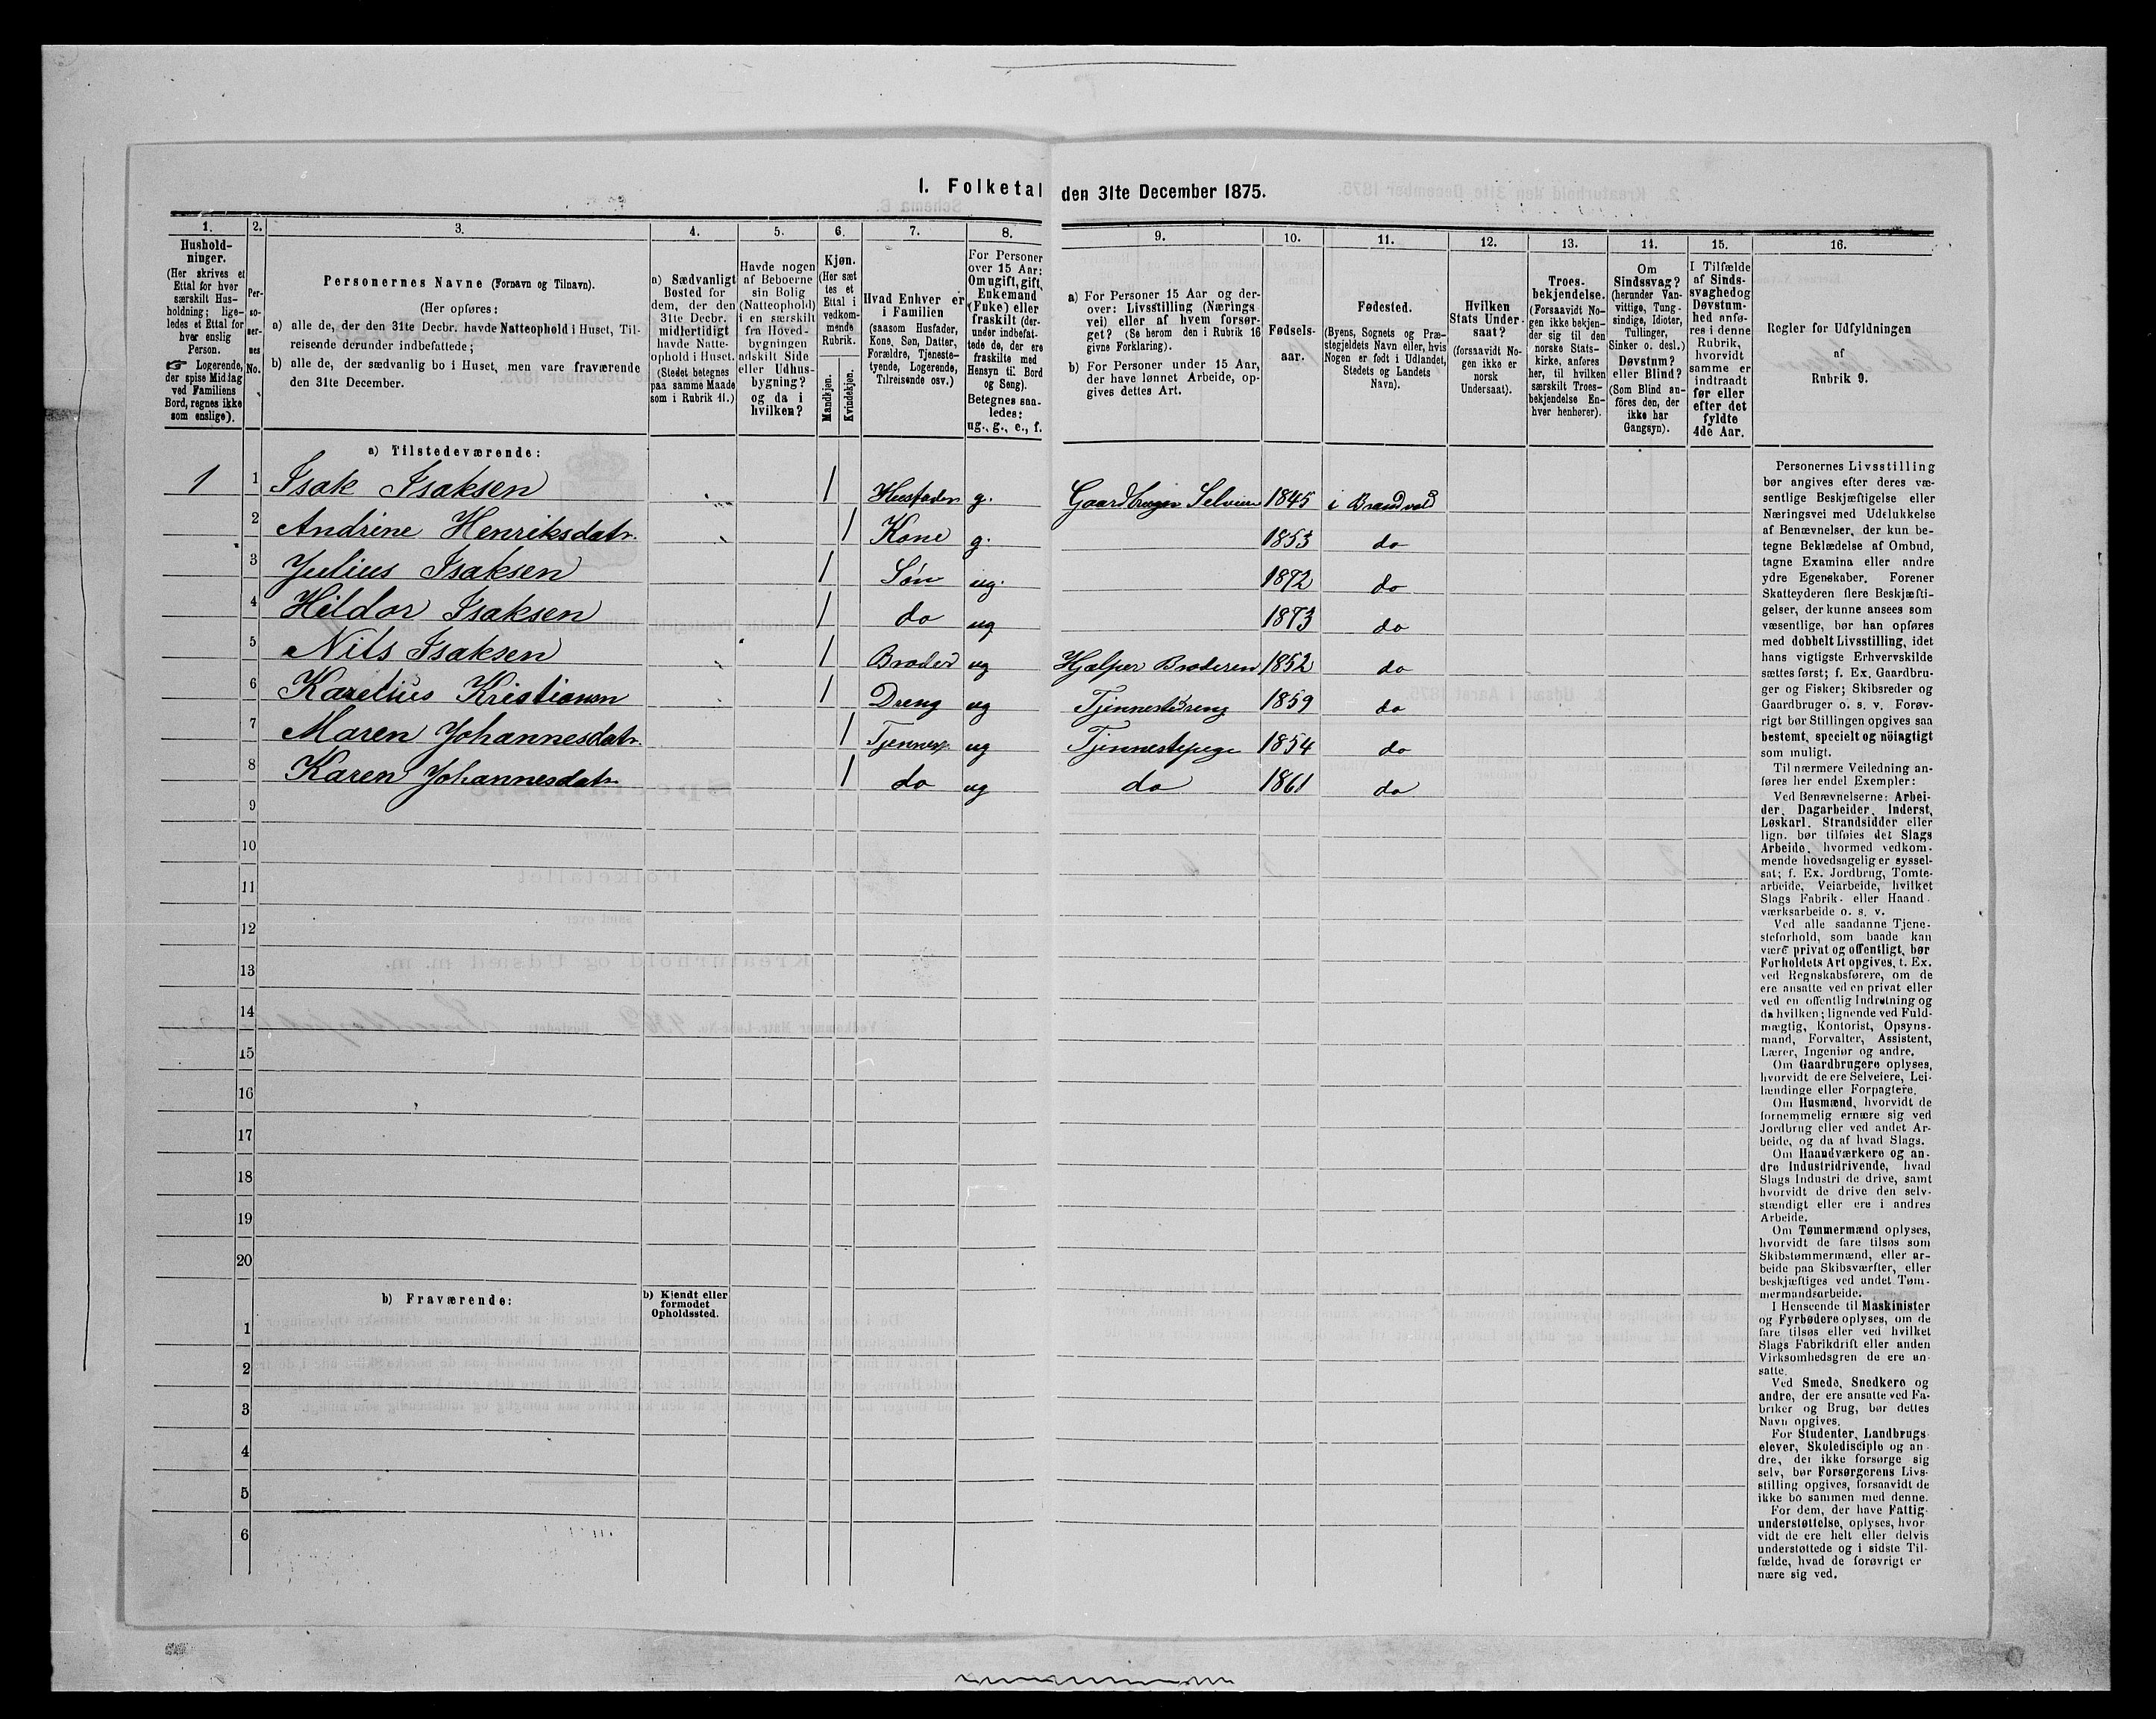 1. Folketal den 31te December 1875.
1.
Hushold-
ninger.
(Her skrives et
Ettal for hver
særskilt Hus-
holdning; lige-
ledes et Ettal for
hver enslig
Person.
☞ Logerende,
der spise Middag
ved Familiens
Bord, regnes ikke
som enslige).
2.
Per-
so-
ner-
nes
No.
3.
Personernes Navne (Fornavn og Tilnavn).
(Her opføres:
a) alle de, der den 31te Decbr. havde Natteophold i Huset, Til-
reisende derunder indbefattede;
b) alle de, der sædvanlig bo i Huset, men vare fraværende
den 31te December.
4.
a) Sædvanligt
Bosted for
dem, der den
31te Decbr.
midlertidigt
havde Natte-
ophold i Huset.
(Stedet betegnes
paa samme Maade
som i Rubrik 11.)
5.
Havde nogen
af Beboerne
sin Bolig
(Natteophold)
i en særskilt
fra Hoved-
bygningen
adskilt Side
eller Udhus-
bygning?
og da i
hvilken?
6.
Kjøn.
(Her sæt
tes et
Ettal i
vedkom-
mende
Rubrik.
Mandkjøn.
Kvindekjøn.
7.
Hvad Enhver er
i Familien
(saasom Husfader,
Kone, Søn, Datter,
Forældre, Tjeneste-
tyende, Logerende,
Tilreisende osv.)
8.
For Personer
over 15 Aar:
Om ugift, gift,
Enkemand
(Enke) eller
fraskilt (der-
under indbefat-
tede de, der ere
fraskilte med
Hensyn til Bord
og Seng).
Betegnes saa-
ledes:
ug., g., e., f.
9.
a) For Personer 15 Aar og der-
over: Livsstilling (Nærings
vei) eller af hvem forsør-
get? (Se herom den i Rubrik 16
givne Forklaring).
b) For Personer under 15 Aar,
der have lønnet Arbeide, op-
gives dettes Art.
10.
Fødsels-
aar.
11.
Fødested.
(Byens, Sognets og Præ-
stegjeldets Navn eller, hvis
Nogen er født i Udlandet,
Stedets og Landets
Navn).
12.
Hvilken
Stats Under-
saat?
(forsaavidt No-
gen ikke er
norsk
Undersaat).
13.
Troes-
bekjendelse.
(Forsaavidt No-
gen ikke bekjen-
der sig til den
norske Stats-
kirke, anføres
her, til hvilken
særskilt Troes-
bekjendelse En-
hver henhører).
14.
Om
Sindssvag?
(herunder Van-
vittige, Tung-
sindige, Idioter,
Tullinger,
Sinker o. desl.)
Døvstum?
eller Blind?
(Som Blind an-
föres den, der
ikke har
Gangsyn).
15.
I Tilfælde
af Sinds-
svaghed og
Døvstum-
hed anfø-
res i denne
Rubrik,
hvorvidt
samme er
indtraadt
før eller
efter det
fyldte
4de Aar.
16.
Regler for Udfyldningen
af
Rubrik 9.
a) Tilstedeværende:
1 1 Isak Isaksen 1 Husfader g. Gaardbruger Selveier 1845 i Brandvold
2 Andrine Henriksdatr. 1 Kone g. 1853 do
3 Julius Isaksen 1 Søn ug. 1872 do
4 Hildor Isaksen 1 do ug 1873 do
5 Nils Isaksen 1 Broder ug Hjælper Broderen 1852 do
6 Karelius Kristiansen 1 Dreng ug Tjennestedreng 1859 do
7 Maren Johannesdatr. 1 Tjennesp. ug Tjennestepige 1854 do
8 Karen Johannesdatr 1 do ug do 1861 do
9
10
11
12
13
14
15
16
17
18
19
20
b) Fraværende:
b) Kjendt eller
formodet
Opholdssted.
1
2
3
4
5
6
Personernes Livsstilling
bør angives efter deres væ-
sentlige Beskjæftigelse eller
Næringsvei med Udelukkelse
af Benævnelser, der kun be-
tegne Beklædelse af Ombud,
tagne Examina eller andre
ydre Egenskaber. Forener
Skatteyderen flere Beskjæfti-
gelser, der kunne ansees som
væsentlige, bør han opføres
med dobbelt Livsstilling, idet
hans vigtigste Erhvervskilde
sættes først; f. Ex. Gaardbru-
ger og Fisker; Skibsreder og
Gaardbruger o. s. v. Forøv-
rigt bør Stillingen opgives saa
bestemt, specielt og nöiagtigt
som muligt.
Til nærmere Veiledning an-
føres her endel Exempler:
Ved Benævnelserne: Arbei-
der, Dagarbeider, Inderst,
Løskarl, Strandsidder eller
lign. bør tilføies det Slags
Arbeide, hvormed vedkom-
mende hovedsagelig er syssel-
sat; f. Ex. Jordbrug, Tomte-
arbeide, Veiarbeide, hvilket
Slags Fabrik- eller Haand-
værksarbeide o. s. v.
Ved alle saadanne Tjene-
steforhold, som baade kan
være privat og offentligt, bør
Forholdets Art opgives, t. Ex.
ved Regnskabsførere, om de
ere ansatte ved en privat eller
ved en offentlig Indretning og
da hvilken; lignende ved Fuld-
mægtig, Kontorist, Opsyns-
mand, Forvalter, Assistent,
Lærer, Ingeniør og andre.
Om Gaardbrugere oplyses,
hvorvidt de ere Selveiere, Lei-
lændinge eller Forpagtere.
Om Husmænd, hvorvidt de
fornemmelig ernære sig ved
Jordbrug eller ved andet Ar-
beide, og da af hvad Slags.
Om Haandværkere og an-
dre Industridrivende, hvad
Slags Industri de drive, samt
hvorvidt de drive den selv-
stændigt eller ere i andres
Arbeide.
Om Tømmermænd oplyses,
hvorvidt de fare tilsøs som
Skibstømmermænd, eller ar-
beide paa Skibsværfter, eller
beskjæftiges ved andet Tøm-
mermandsarbeide.
I Henseende til Maskinister
og Fyrbødere oplyses, om de
fare tilsøs eller ved hvilket
Slags Fabrikdrift eller anden
Virksomhedsgren de ere an-
satte.
Ved Smede, Snedkere og
andre, der ere ansatte ved Fa-
briker og Brug, bør dettes
Navn opgives.
For Studenter, Landbrugs
elever, Skoledisciple og an-
dre, der ikke forsørge sig
selv, bør Forsørgerens Livs-
stilling opgives, forsaavidt de
ikke bo sammen med denne.
For dem, der have Fattig
understøttelse, oplyses, hvor
vidt de ere helt eller delvis
understøttede og i sidste Til-
fælde, hvad de forøvrigt er
nære sig ved.